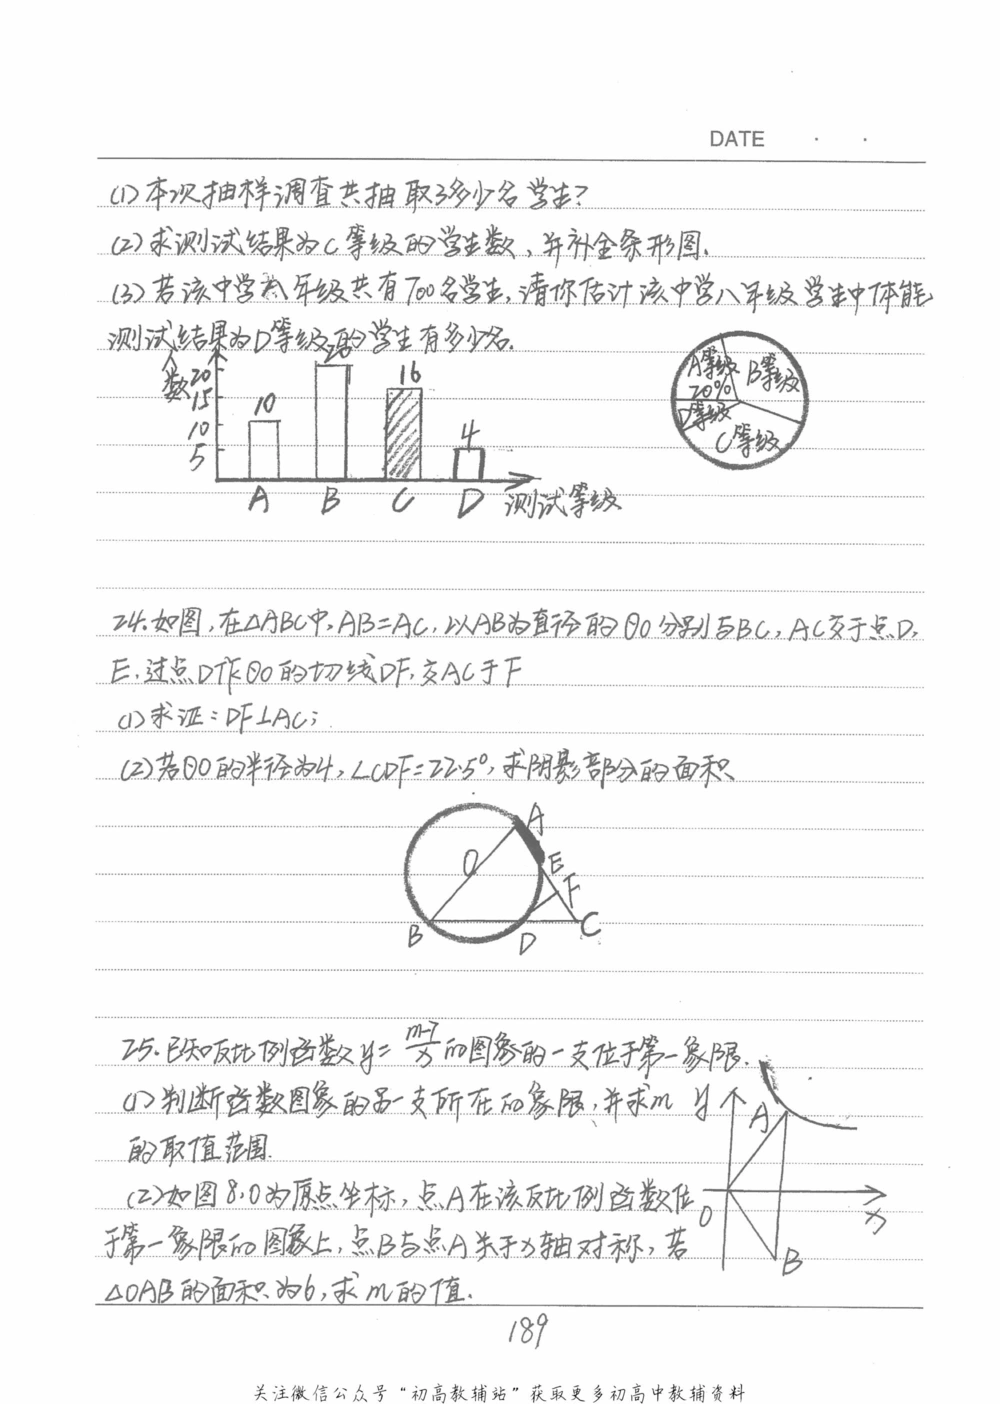 DATE
(1)本次抽样调查共抽取了多少名学生?
(2)求测试结果为C等级的学生数,并补全条形图.
(3)若该中学八年级共有700名学生,请你估计该中学八年级学生中体能
测试结果为D等级的学生有多少名.
人数
20
15
10
5
10
20
16
4
A B C D 测试等级
A等级
20%
B等级
D等级
C等级
24.如图,在△ABC中,AB=AC,以AB为直径的⊙O分别与BC,AC交于点D,
E,过点D作⊙O的切线DF,交AC于F
(1)求证:DF⊥AC;
(2)若⊙O的半径为4,∠CDF=22.5°,求阴影部分的面积
A
O
E
F
B
D
C
25.已知反比例函数y=(m-7)/x的图象的一支位于第一象限.
(1)判断函数图象的另一支所在的象限,并求m
的取值范围.
(2)如图8,O为原点坐标,点A在该反比例函数位
于第一象限的图象上,点B与点A关于x轴对称,若
△OAB的面积为6,求m的值.
y
A
O
x
B
189
关注微信公众号“初高教辅站”获取更多初高中教辅资料